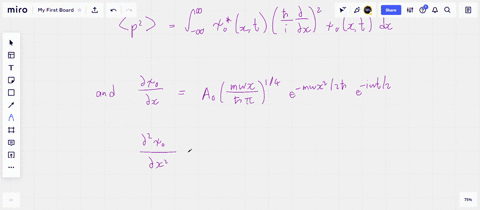 miro My First Board Share
⟨p²⟩ = ∫_{-∞}^{∞} ψ₀*(x,t) (ħ/i ∂/∂x)² ψ₀(x,t) dx
and ∂ψ₀/∂x = A₀ (mωx/ħπ)^{1/4} e^{-mωx²/2ħ} e^{-iωt/2}
∂²ψ₀/∂x²
75%